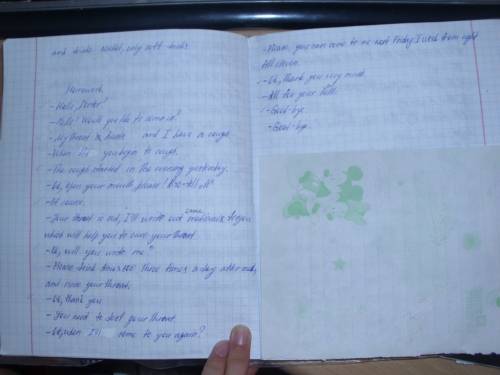 and drinks alcohol, only soft-drinks
Homework
- Hello, Doctor!
- Hello! Would you like to come in?
- My throat is and I have a cough.
- When did you began to cough.
- The cough started in the evening yesterday.
- Ok, open your mouth, please!
- Of course.
- Your throat is red, I'll write out some to you
what will help you to cure your throat.
- Ok, will you write me?
- Please drink three times a day after
and rinse your throat.
- Ok, thank you
- You need to your throat.
- Ok, when I'll come to you again?
- Please, you can come to me next Friday. I work from eight
till eleven.
- Oh, thank you very much.
- All for your
- Good-bye.
- Good-bye.